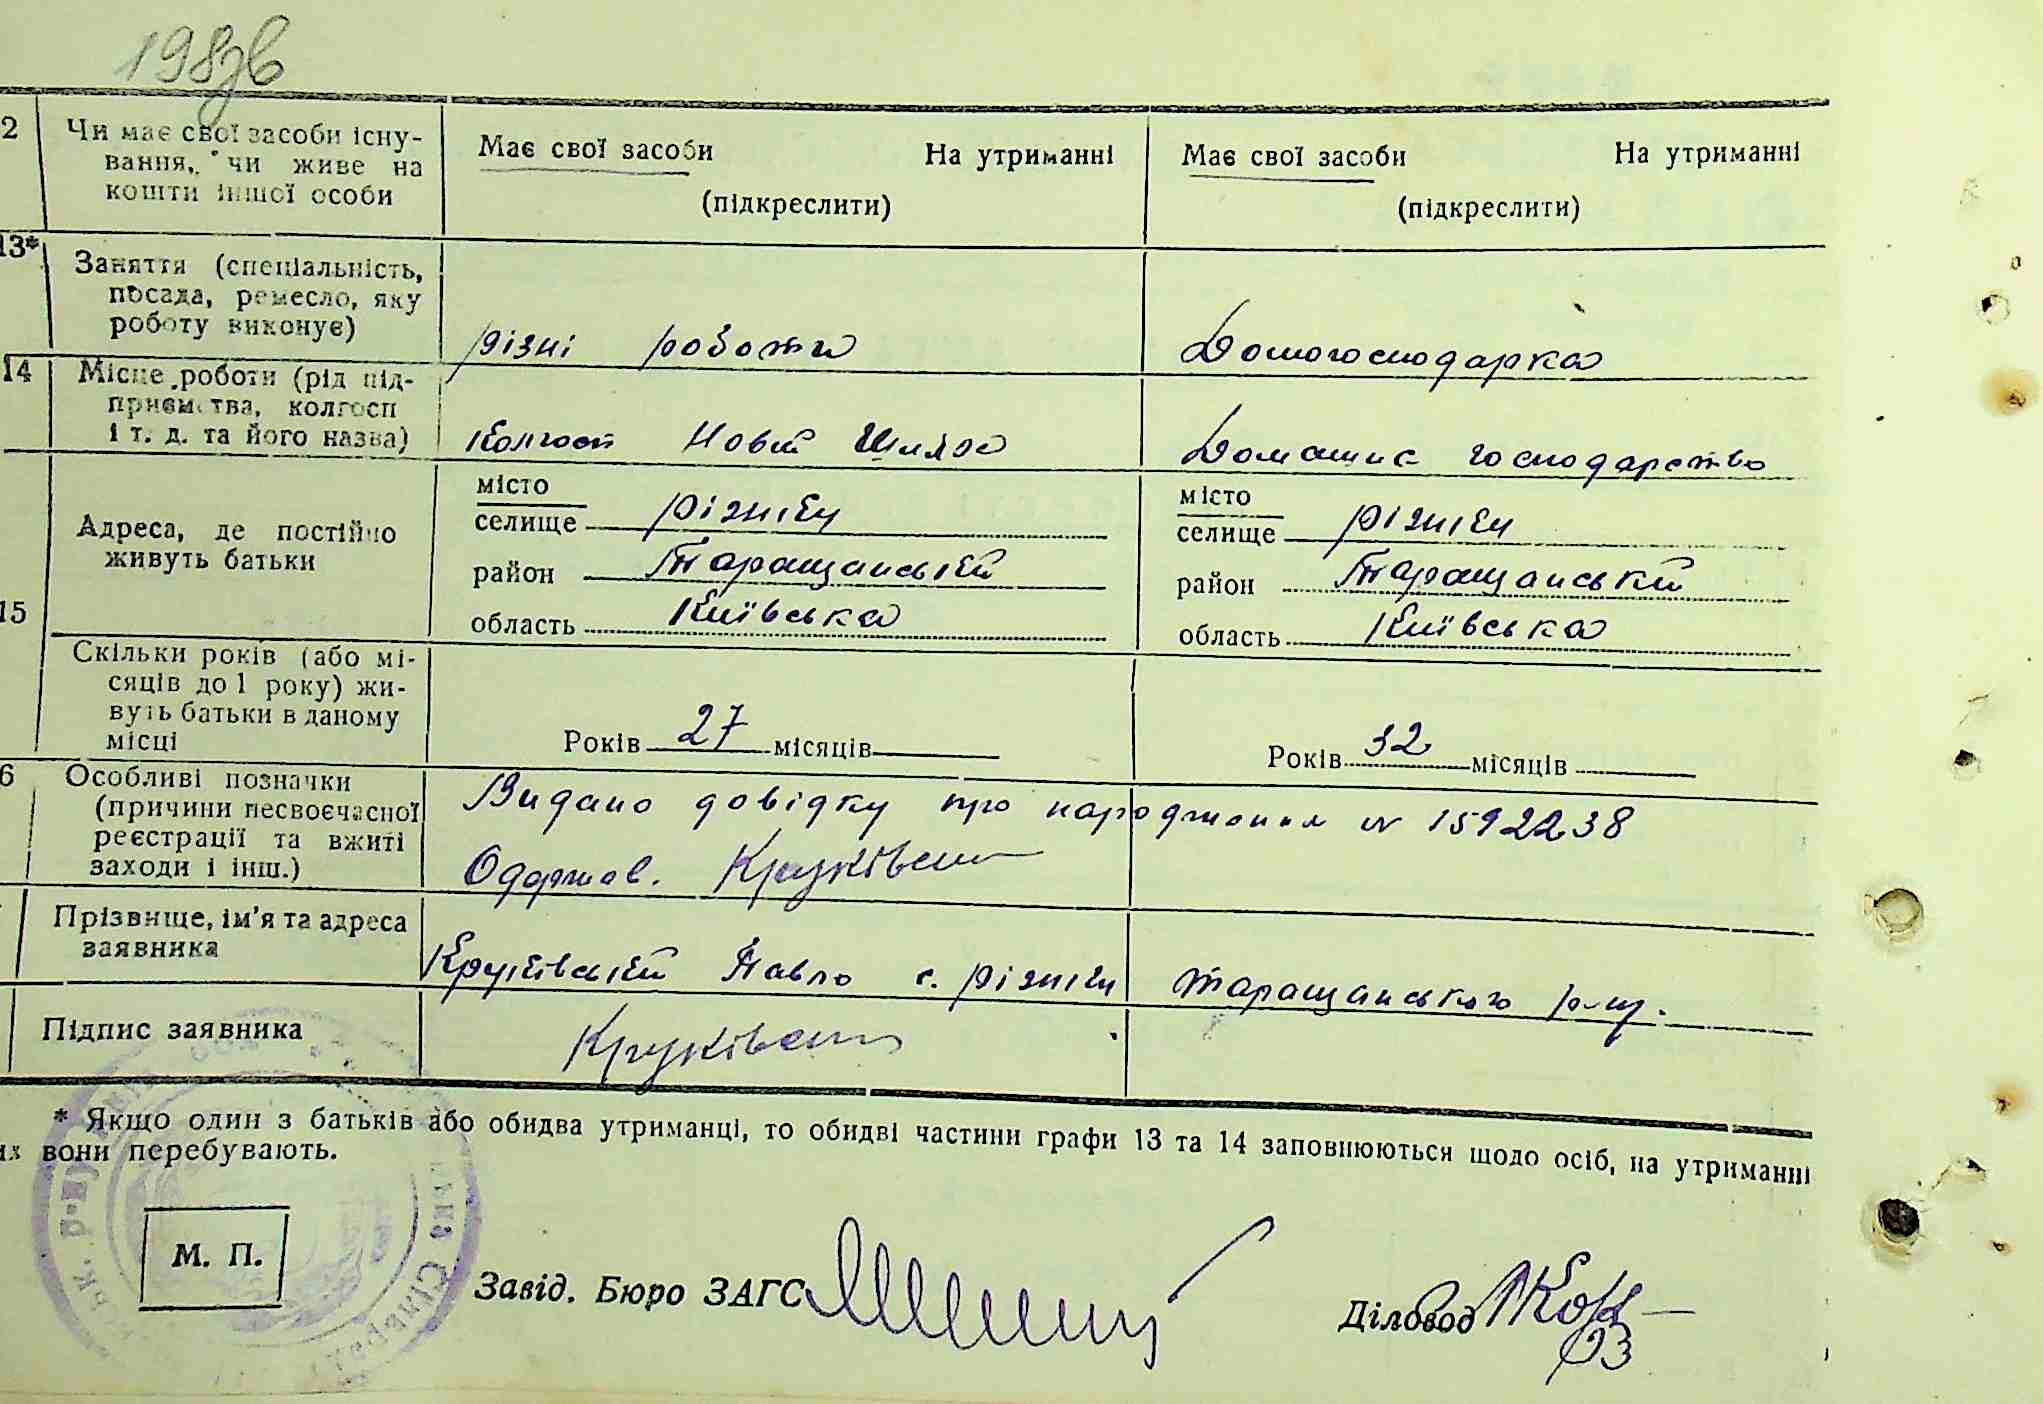 198зв
2 Чи має свої засоби існу-
вання, чи живе на
кошти іншої особи
Має свої засоби На утриманні
(підкреслити)
Має свої засоби На утриманні
(підкреслити)
13* Заняття (спеціальність,
посада, ремесло, яку
роботу виконує)
різні роботи
Домогосподарка
14 Місце роботи (рід під-
приємства, колгосп
і т. д. та його назва)
Колгосп Новий Шлях
Домашнє господарство
15
Адреса, де постійно
живуть батьки
місто
селище Різніки
район Таращанський
область Київська
місто
селище Різніки
район Таращанський
область Київська
Скільки років (або мі-
сяців до 1 року) жи-
вуть батьки в даному
місці
Років 27 місяців
Років 32 місяців
6 Особливі позначки
(причини несвоєчасної
реєстрації та вжиті
заходи і інш.)
Видано довідку про народження № 1592238
Одержав. Круківськ
Прізвище, ім'я та адреса
заявника
Круківський Павло с. Різніки Таращанського р-ну.
Підпис заявника
Круківськ
* Якщо один з батьків або обидва утриманці, то обидві частини графи 13 та 14 заповнюються щодо осіб, на утриманні
их вони перебувають.
М. П.
ськ. р-ну
Сільрада
Завід. Бюро ЗАГС
Діловод